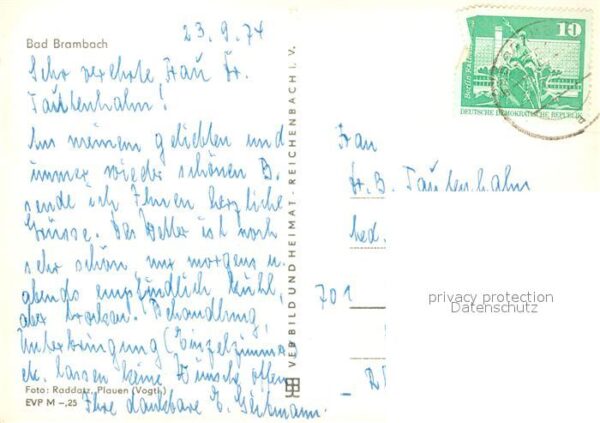 23.9.74
Bad Brambach
Sehr verehrte Frau Dr.
Tautenhahn!
Aus meinem geliebten und
immer wieder schönen B.
sende ich Ihnen herzliche
Grüsse. Das Wetter ist noch
sehr schön, nur morgens u.
abends empfindlich kühl,
aber trocken. Behandlung,
Unterbringung (Einzelzimmer)
etc. lassen keine Wünsche offen.
Foto: Raddatz, Plauen (Vogtl.)
EVP M -,25
Ihre dankbare
VEB BILD UND HEIMAT · REICHENBACH I. V.
10
Berlin
DEUTSCHE DEMOKRATISCHE REPUBLIK
Frau
Dr. B. Tautenhahn
701
privacy protection
Datenschutz